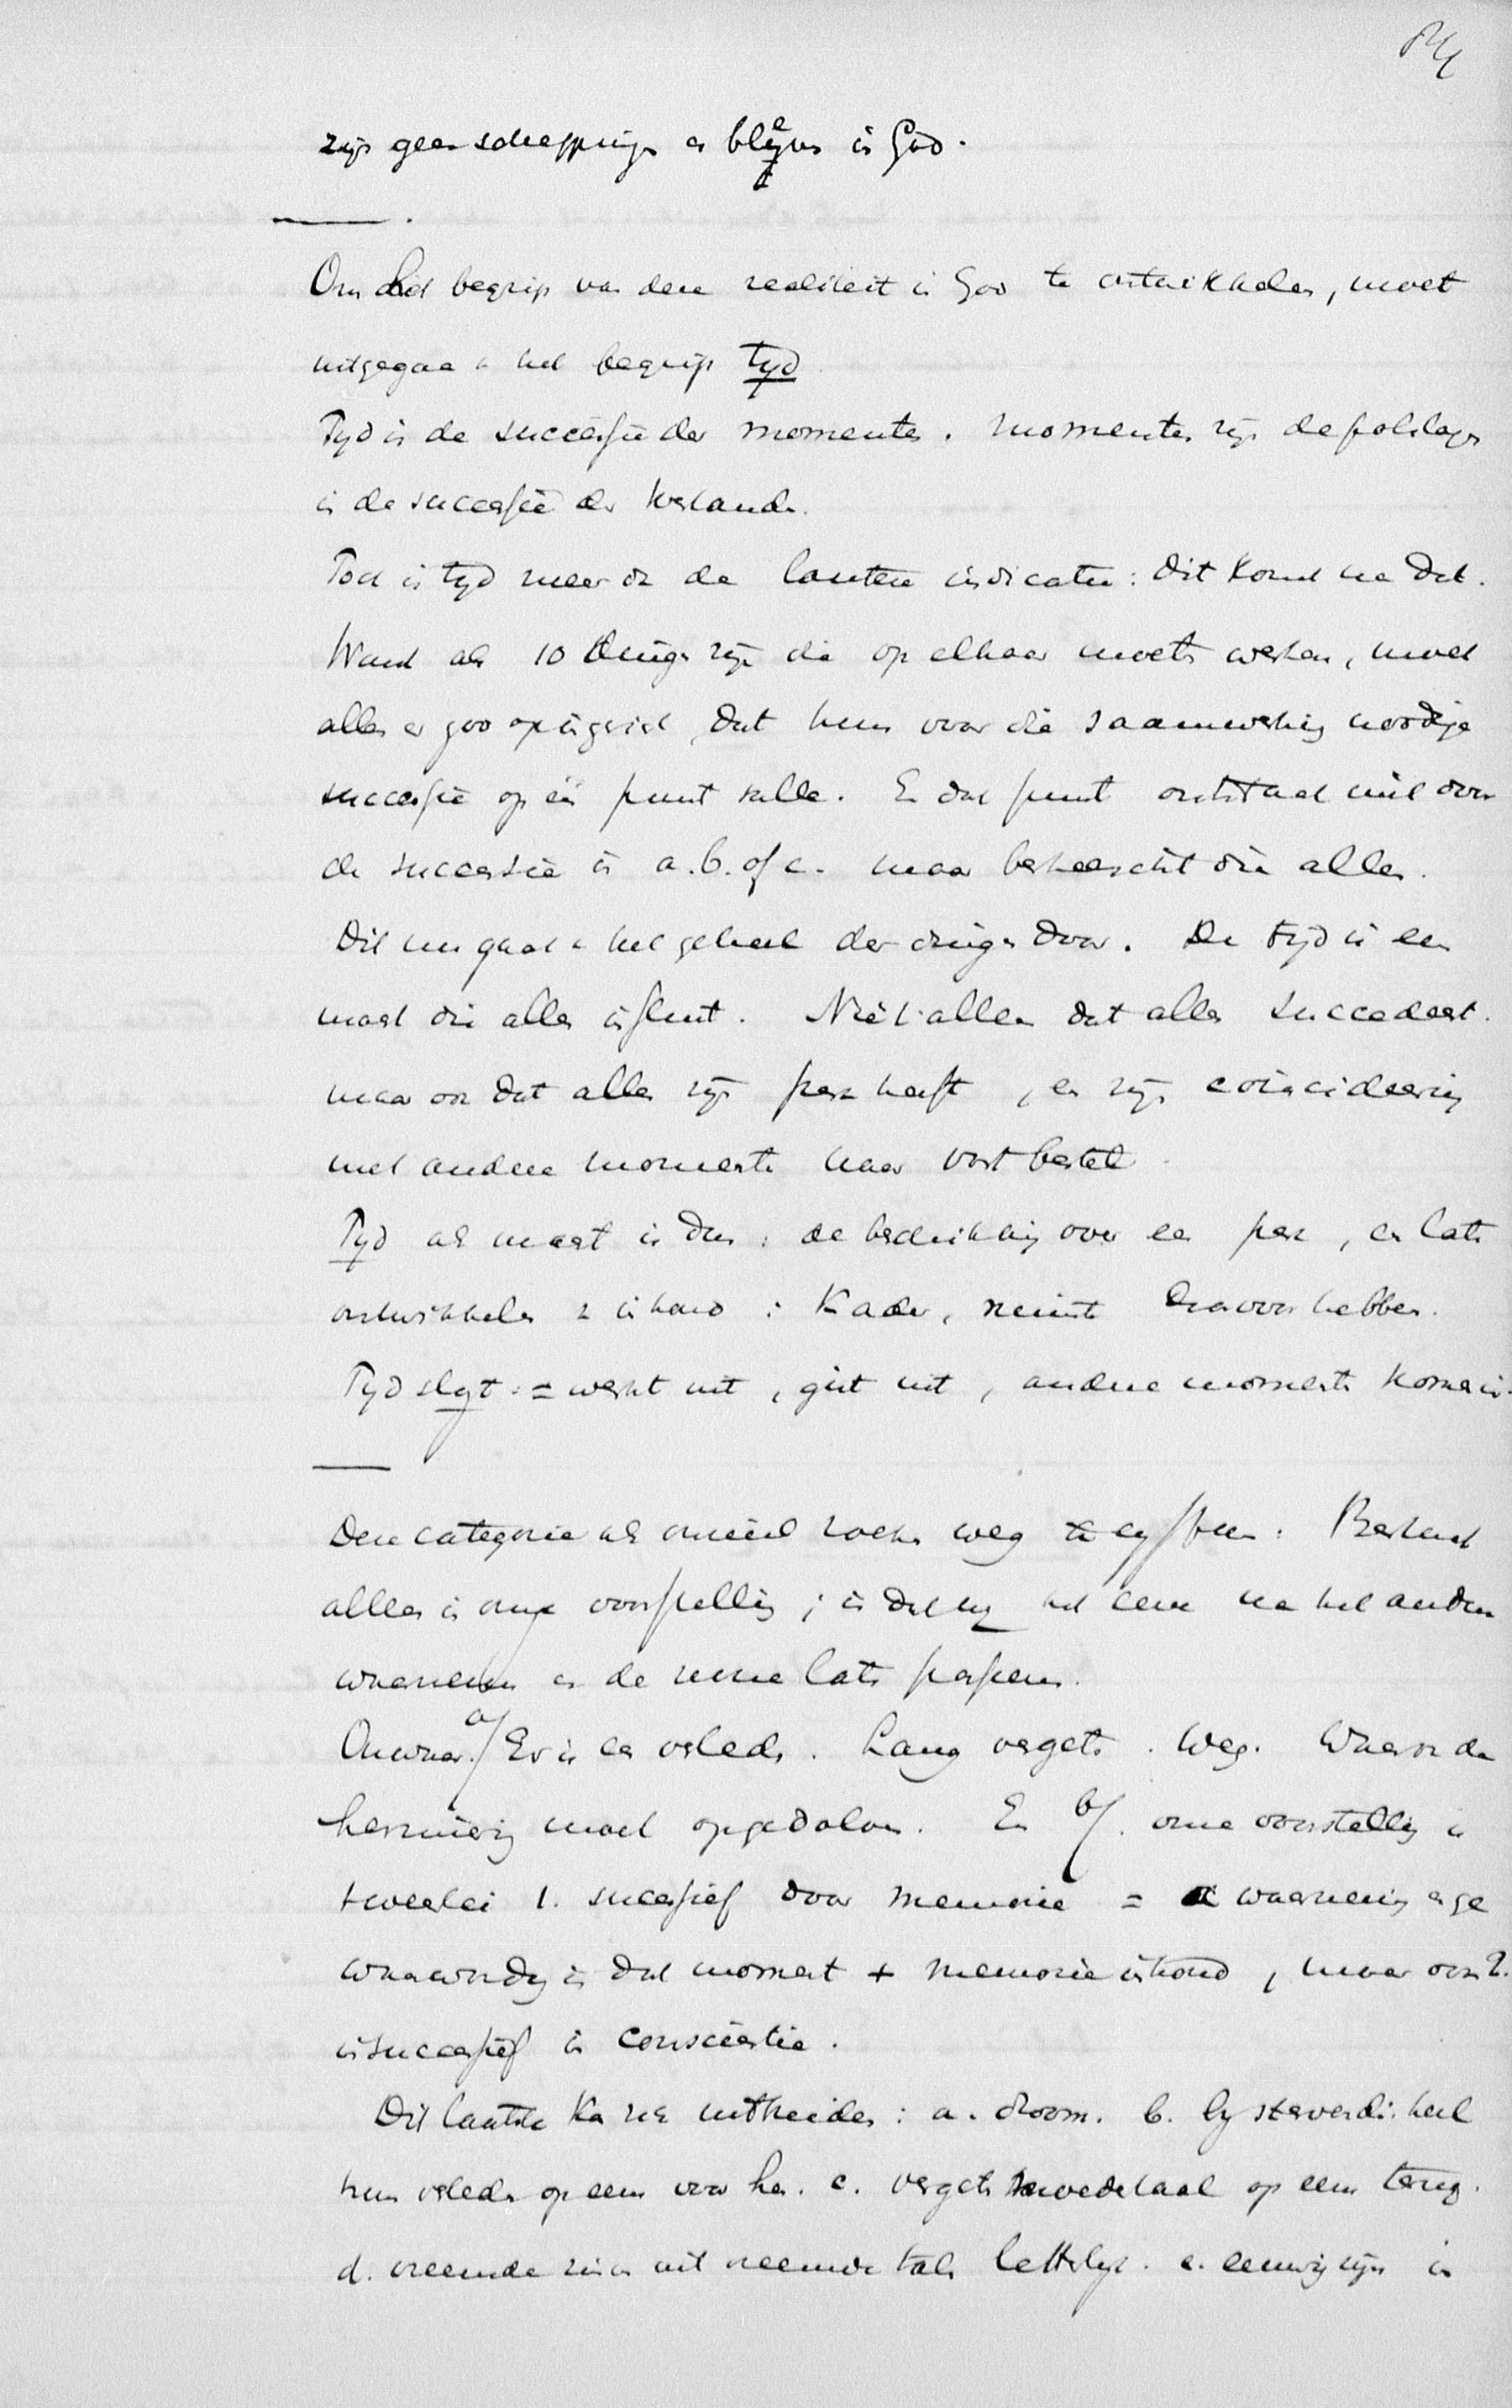 zijn geen scheppingen en blijven in God.
Om het begrip van deze realiteit in God te ontwikkelen, moet
uitgegaan v. het begrip tyd
Tyd is de successie der momenten. Momenten zijn de
in de successie der
Toch is tyd meer dan de loutere indicatie: dit komt na dat.
Want als 10 dingen zijn die op elkaar moeten werken, moet
alles er zoo op ingericht, dat hun voor die saamwerking noodige
successie op één punt valle. En dat punt ontstaat niet door
de successie in a. b. of c. maar beheerscht die alle.
Dit nu gaat v. het geheel der dingen door. De tyd is een
macht die alles influit. Niet alleen dat alles succedeert.
maar ook dat alles zijn perk heeft, en zijn coincideering
met andere momenten naar vast bestel.
Tyd als maat is dus: de beschikking over een perk, en laten
ontwikkelen v. inhoud: Kader, ruimte daarvoor hebben.
Tyd slyt: = werkt uit, giet uit, andere momenten komen in.
Deze categorie als onreëel zoeken weg te cyferen: Bestaat
alles in onze voorstelling; is dat wy het eene na het andere
waarnemen en de reine laten passeren.
Onwaar. a/ Er is een verleden. Lang vergeten. Weg. Waarvan de
herinnering moet opgedolven. En b/. onze voorstelling is
tweeërlei 1. successief door memorie = waarneming en ge
waarwording in dat moment + memorie inhoud, maar ook 2.
insuccessief in conscientie.
Dit laatste kan zich uitbreiden: a. droom. b. by stervende: heel
hun verleden op eens voor hen. c. vergeten moedertaal op eens terug.
d. vreemde zinnen uit vreemde talen letterlyk. e. eeuwig zijn in